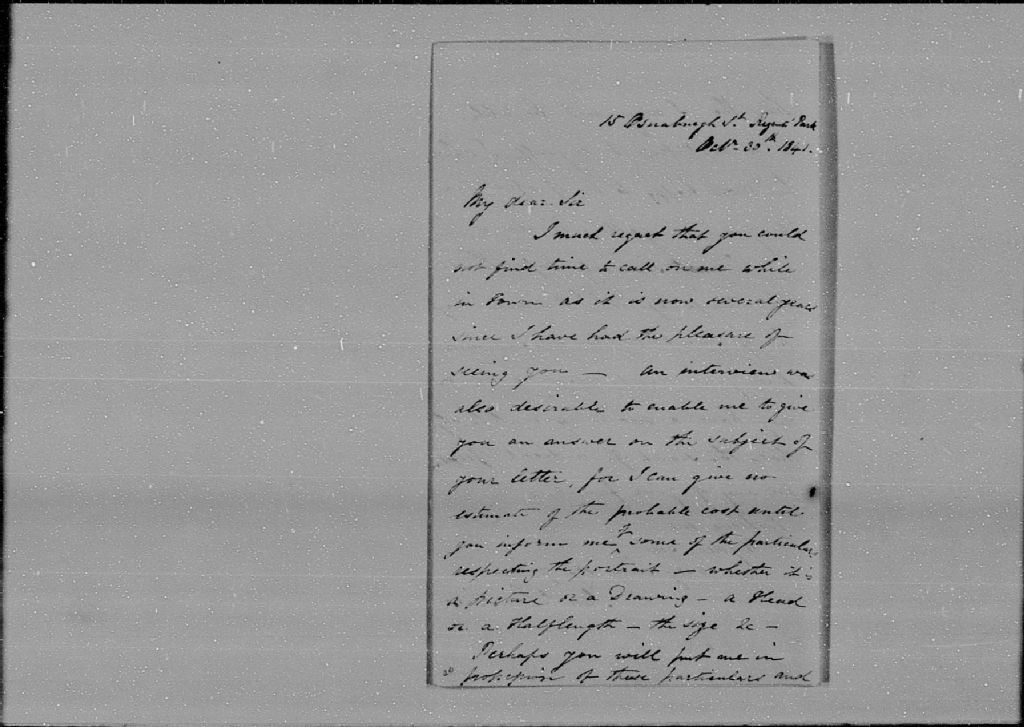 15 Osnaburgh St. Regents Park
Octr. 30th. 1841.
My dear Sir
I much regret that you could
not find time to call on me while
in Town as it is now several years
since I have had the pleasure of
seeing you — an interview was
also desirable to enable me to give
you an answer on the subject of
your letter, for I can give no
estimate of the probable cost until
you inform me of some of the particulars
respecting the portrait — whether it is
a picture or a Drawing — a Head
or a Halflength — the size &c —
Perhaps you will put me in
possession of these particulars and